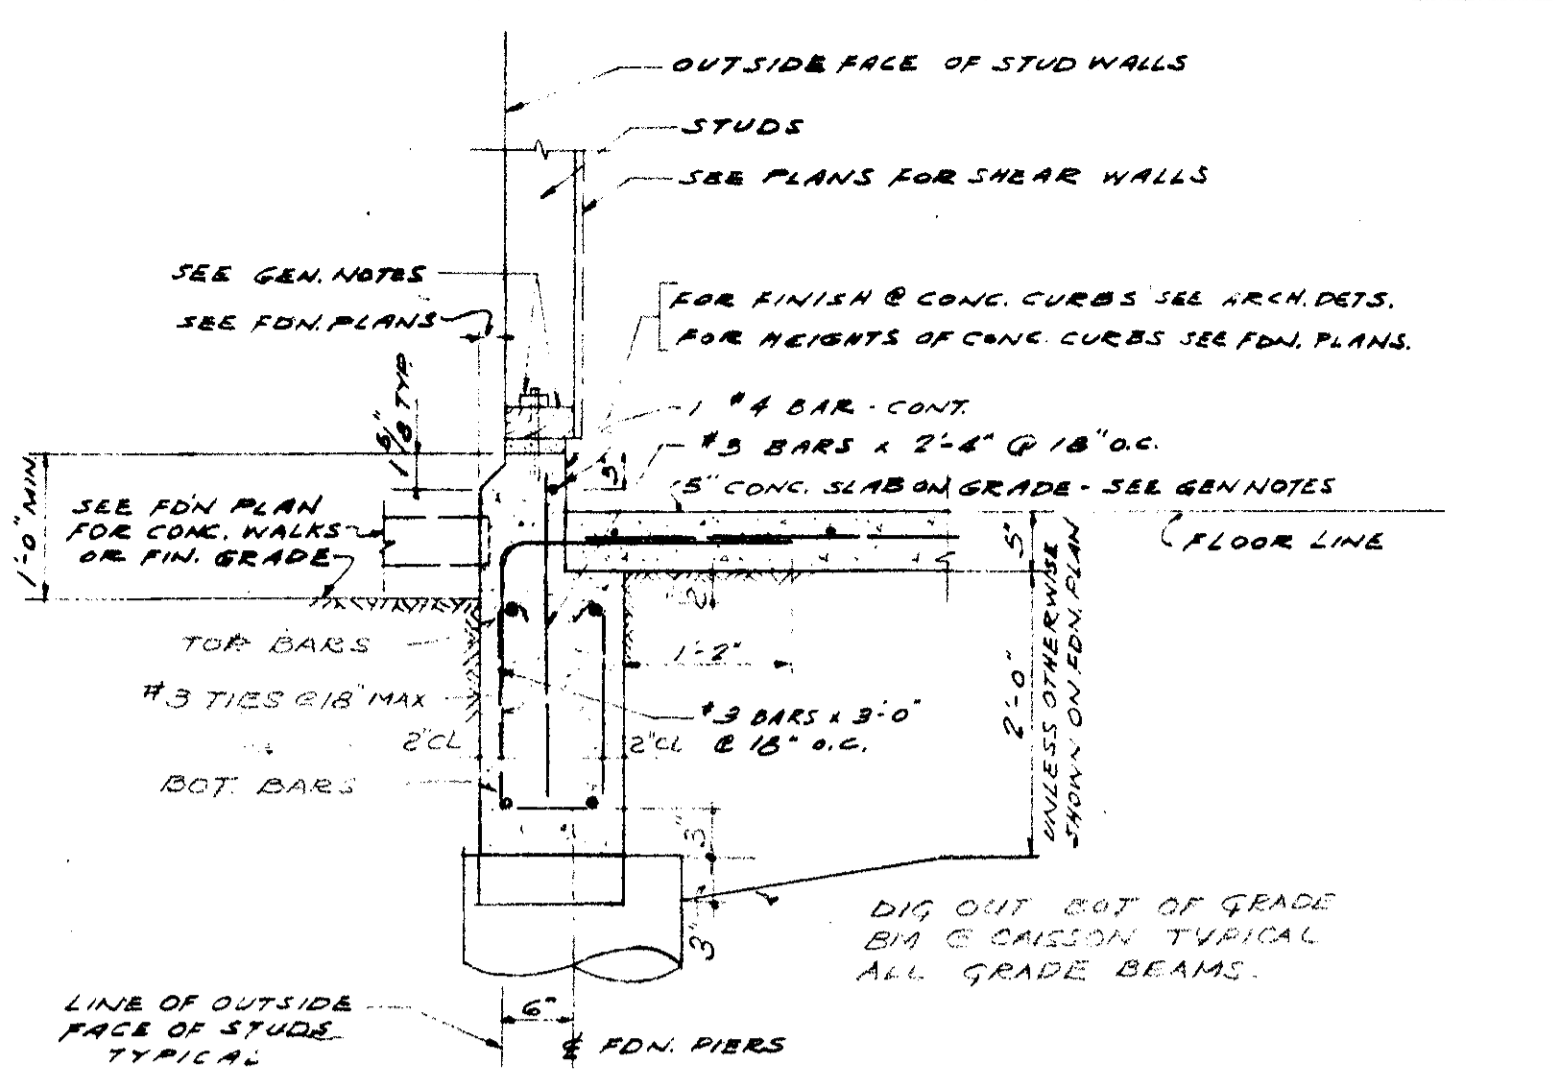 OUTSIDE FACE OF STUD WALLS
STUDS
SEE PLANS FOR SHEAR WALLS
SEE GEN. NOTES
SEE FDN. PLANS
FOR FINISH @ CONC. CURBS SEE ARCH. DETS.
FOR HEIGHTS OF CONC. CURBS SEE FDN. PLANS.
TYP.
1 #4 BAR - CONT.
#3 BARS x 2'-4" @ 18" O.C.
3"
5" CONC. SLAB ON GRADE - SEE GEN NOTES
1'-0" MIN.
SEE FDN PLAN
FOR CONC. WALKS
OR FIN. GRADE
FLOOR LINE
5"
2"
TOP BARS
1'-2"
#3 TIES @ 18" MAX
#3 BARS x 3'-0"
@ 18" O.C.
2"CL
2"CL
BOT. BARS
2'-0"
UNLESS OTHERWISE
SHOWN ON FDN. PLAN
3"
3"
DIG OUT BOT OF GRADE
BM @ CAISSON TYPICAL
ALL GRADE BEAMS.
LINE OF OUTSIDE
FACE OF STUDS
TYPICAL
6"
℄ FDN. PIERS